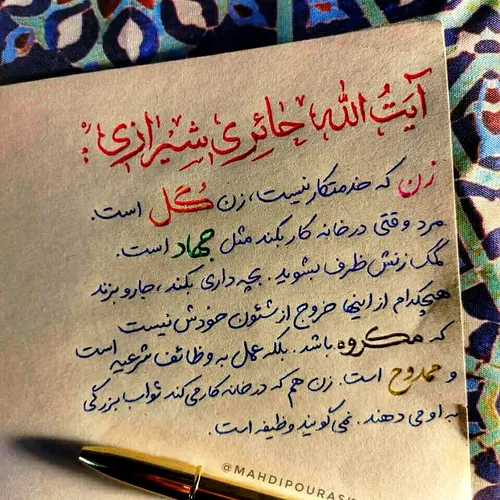 آیَتُ الله حائری شیرازی:
زن که خدمتکار نیست، زن گُل است.
مرد وقتی در خانه کار بکند مثل جهاد است.
کمک زنش ظرف بشوید. بچه داری بکند، جارو بزند
هیچکدام از اینها خروج از شئون خودش نیست
که مکروه باشد. بلکه عمل به وظائف شرعیه است
و ممدوح است. زن هم که در خانه کار می کند ثواب بزرگی
به او می دهند. نمی گویند وظیفه است.